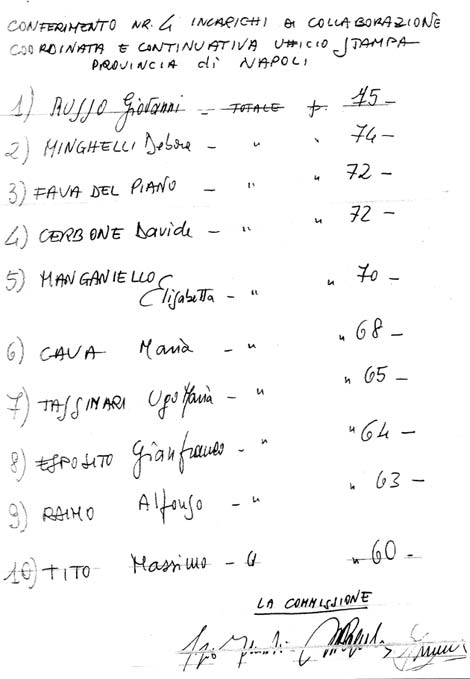 CONFERIMENTO NR. 4 INCARICHI DI COLLABORAZIONE
COORDINATA E CONTINUATIVA UFFICIO STAMPA
PROVINCIA di NAPOLI
1) RUSSO Giovanni - TOTALE p. 75 -
2) MINGHELLI Debora - " " 74 -
3) FAVA DEL PIANO - " " 72 -
4) CERBONE Davide - " " 72 -
5) MANGANIELLO
Elisabetta - " " 70 -
6) CAVA Maria - " " 68 -
7) TASSINARI Ugo Maria - " " 65 -
8) ESPOSITO Gianfranco - " " 64 -
9) RAIMO Alfonso - " " 63 -
10) TITO Massimo - " " 60 -
LA COMMISSIONE